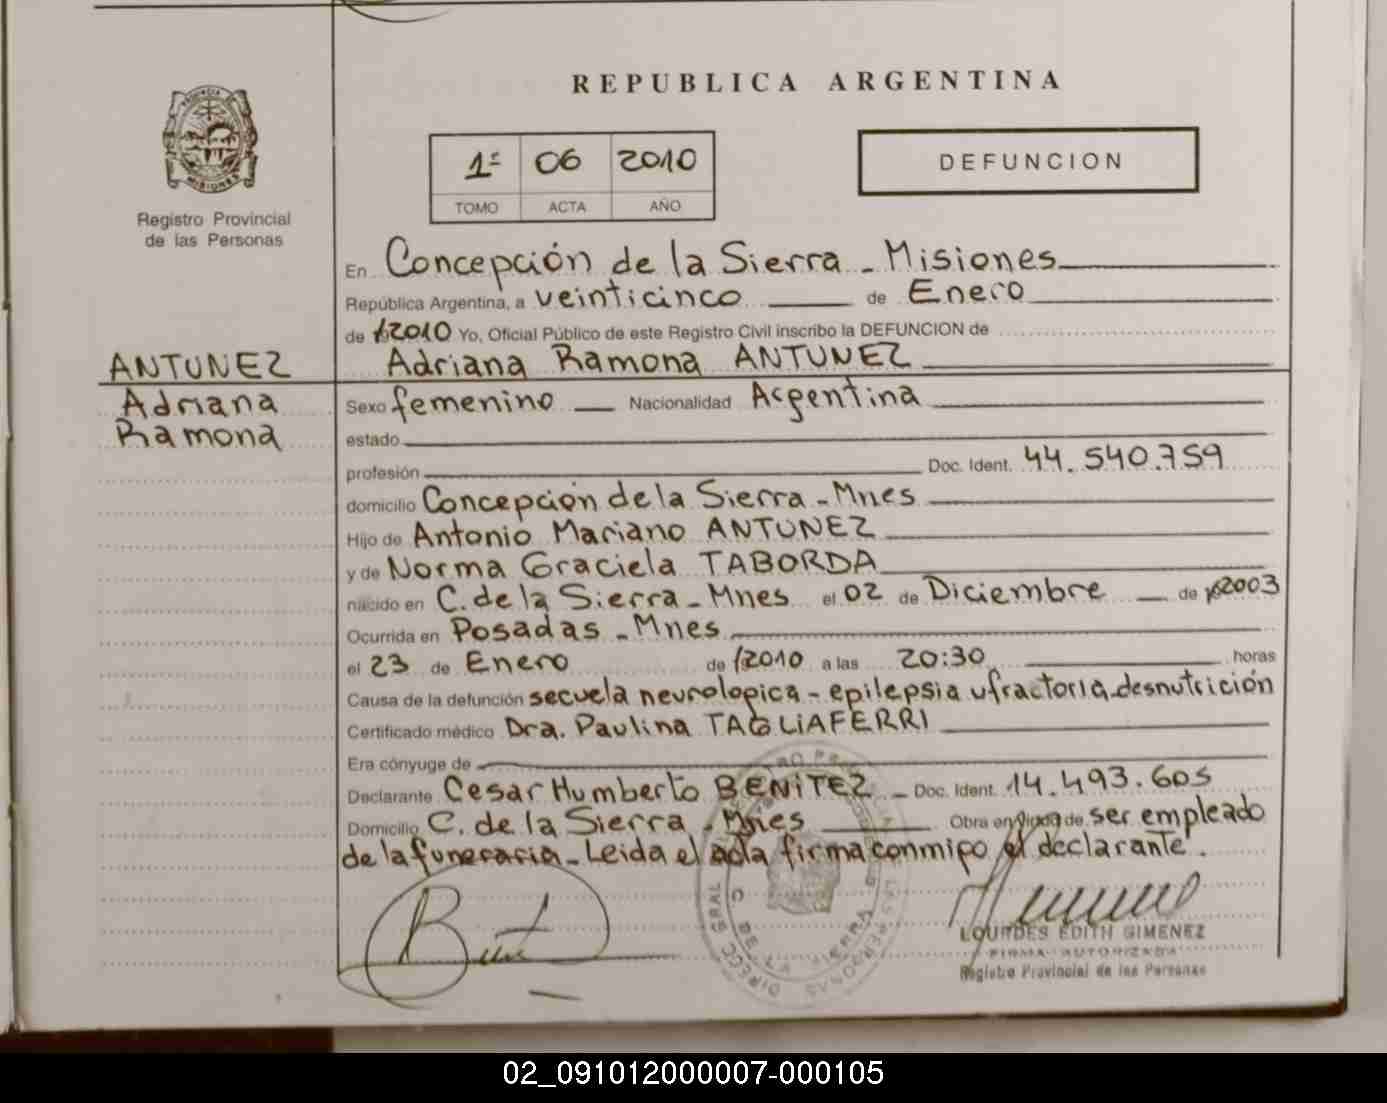 REPUBLICA ARGENTINA
PROVINCIA DE
MISIONES
Registro Provincial
de las Personas
1º 06 2010
TOMO ACTA AÑO
DEFUNCION
En Concepción de la Sierra - Misiones
República Argentina, a veinticinco de Enero
de 2010 Yo, Oficial Público de este Registro Civil inscribo la DEFUNCION de
ANTUNEZ
Adriana
Ramona
Adriana Ramona ANTUNEZ
Sexo femenino Nacionalidad Argentina
estado
profesión Doc. Ident. 44.540.759
domicilio Concepción de la Sierra - Mnes
Hijo de Antonio Mariano ANTUNEZ
y de Norma Graciela TABORDA
nacido en C. de la Sierra - Mnes el 02 de Diciembre de 2003
Ocurrida en Posadas - Mnes
el 23 de Enero de 2010 a las 20:30 horas
Causa de la defunción secuela neurologica - epilepsia desnutrición
Certificado médico Dra. Paulina TAGLIAFERRI
Era cónyuge de
Declarante Cesar Humberto BENITEZ - Doc. Ident. 14.493.605
Domicilio C. de la Sierra - Mnes Obra en de ser empleado
de la funeraria - Leida el acta firma conmigo el declarante.
LOURDES EDITH GIMENEZ
FIRMA AUTORIZADA
Registro Provincial de las Personas
02_091012000007-000105